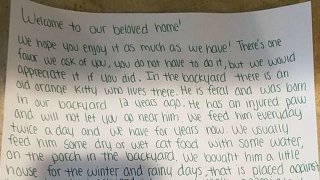 Welcome to our beloved home!
We hope you enjoy it as much as we have! There's one
favor we ask of you, you do not have to do it, but we would
appreciate it if you did. In the backyard there is an
old orange kitty who lives there. He is feral and was born
in our backyard 12 years ago. He has an injured paw
and will not let you go near him. We feed him everyday
twice a day and we have for years now. We usually
feed him some dry or wet cat food with some water,
on the porch in the backyard. We bought him a little
house for the winter and rainy days, that is placed against